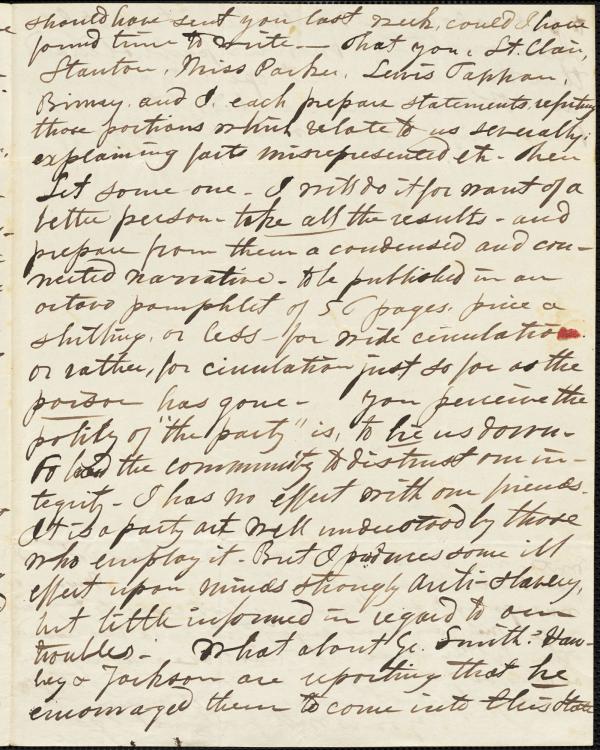 should have sent you last week, could I have
found time to write — That you, St. Clair,
Stanton, Miss Parker, Lewis Tappan,
Birney, and I, each prepare statements, refuting
those portions which relate to us severally;
explaining facts misrepresented etc. Then
Let some one - I will do it for want of a
better person - take all the results - and
prepare from them a condensed and con-
nected narrative - to be published in an
octavo pamphlet of 56 pages. price a
shilling, or less - for wide circulation.
or rather, for circulation just so far as the
poison has gone - You perceive the
policy of "the party" is, to lie us down -
To lead the community to distrust our in-
tegrity - It has no effect with our friends.
It is a party act well understood by those
who employ it - But it produces some ill
effect upon minds strongly Anti-slavery,
but little informed in regard to our
troubles - What about G. Smith? Haw-
ley & Jackson are reporting that he
encouraged them to come into this State